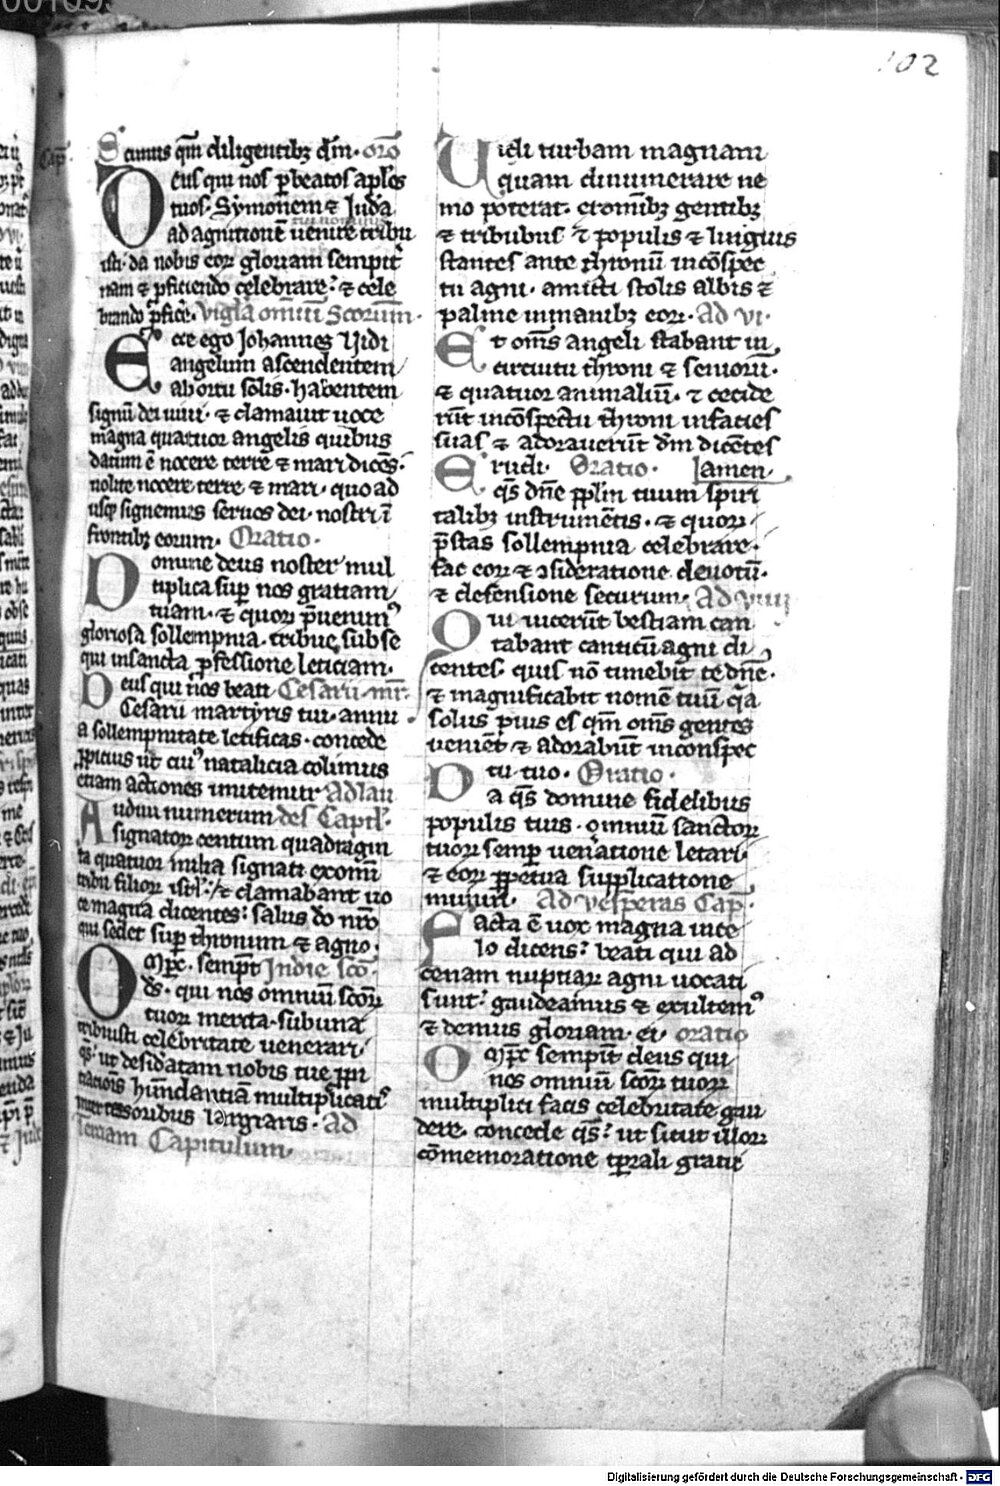 102
Cap̄.
Scimus qm̄ diligentibꝫ dm̄. orō
Deus qui nos p̲ beatos aplōs
tuos. Symonem ⁊ Juda
ad agnitionē uenire tribu
isti. da nobis eoꝝ gloriam sempit̄
nam ⁊ ꝓficiendo celebrare. ⁊ cele
brando ꝓfice. Vigl̄a omniū Scorum.
Ecce ego Johannes Uidi
angelum ascendentem
ab ortu solis. habentem
signū dei uiui. ⁊ clamauit uoce
magna quatuor angelis quibus
datum ē nocere terre ⁊ mari dicēs.
nolite nocere terre ⁊ mari. quo ad
usqꝫ signemus seruos dei nostri ī
frontibꝫ eorum. Oratio.
Domine deus noster mul
tiplica sup̲ nos gratiam
tuam. ⁊ quoꝝ p̄uenimꝰ
gloriosa sollempnia. tribue subse
qui in sancta ꝓfessione leticiam.
Deus qui nos beati Cesarii mr̄.
Cesarii martyris tui. annu
a sollempnitate letificas. concede
ꝓpicius ut cuiꝰ natalicia colimus
etiam actiones imitemur Ad lau
Audiui numerum des Capitl̄.
signatoꝝ centum quadragin
ta quatuor milia signati ex omī
tribu filioꝝ isrl̄. ⁊ clamabant uo
ce magna dicentes. salus dō nr̄o
qui sedet sup̲ thronum ⁊ agno.
Omp̄c. sempit̄ In die scō.
ds̄. qui nos omniū scōꝝ
tuoꝝ merita. sub una
tribuisti celebritate uenerari.
qs̄. ut desid̲atam nobis tue ꝓpi
tiationis habundantiā multiplicatis
intercessoribus largiaris. Ad
Terciam Capitulum.
Uidi turbam magnam
quam dinumerare ne
mo poterat. ex omībꝫ gentibꝫ
⁊ tribubus ⁊ populis ⁊ linguis
stantes ante thronū in cōspec
tu agni. amicti stolis albis ⁊
palme in manibꝫ eoꝝ. Ad vi.
Et oms̄ angeli stabant in
circuitu throni ⁊ senioꝝ.
⁊ quatuor animaliū. ⁊ cecide
rūt in cōspectu throni in facies
suas ⁊ adorauerūt dm̄ dicētes
Erudi. Oratio. Iamen.
qs̄ dn̄e pplm̄ tuum spiri
talibꝫ instrumētis. ⁊ quoꝝ
p̄stas sollempnia celebrare.
fac eoꝝ ⁊ ꝯsideratione deuotū.
⁊ defensione securum. Ad viiii
Qui uicerūt bestiam can
tabant canticū agni di
centes. quis nō timebit te dn̄e.
⁊ magnificabit nomē tuū q̄a
solus pius es qm̄ oms̄ gentes
ueniēt ⁊ adorabūt in conspec
tu tuo. Oratio.
Da qs̄ domine fidelibus
populis tuis. omniū sanctoꝝ
tuoꝝ semp̲ uen̄atione letari
⁊ eoꝝ ꝑpetua supplicatione
muniri. Ad vesperas Cap̄.
Facta ē uox magna in ce
lo dicens. beati qui ad
cenam nuptiaꝝ agni uocati
sunt. gaudeamus ⁊ exultemꝰ
⁊ demus gloriam ei. oratio
Omp̄c sempit̄ deus qui
nos omniū scōꝝ tuoꝝ
multiplici facis celebritate gau
dere. concede qs̄. ut sicut illoꝝ
cōmemoratione tp̲rali gratie
Digitalisierung gefördert durch die Deutsche Forschungsgemeinschaft - DFG